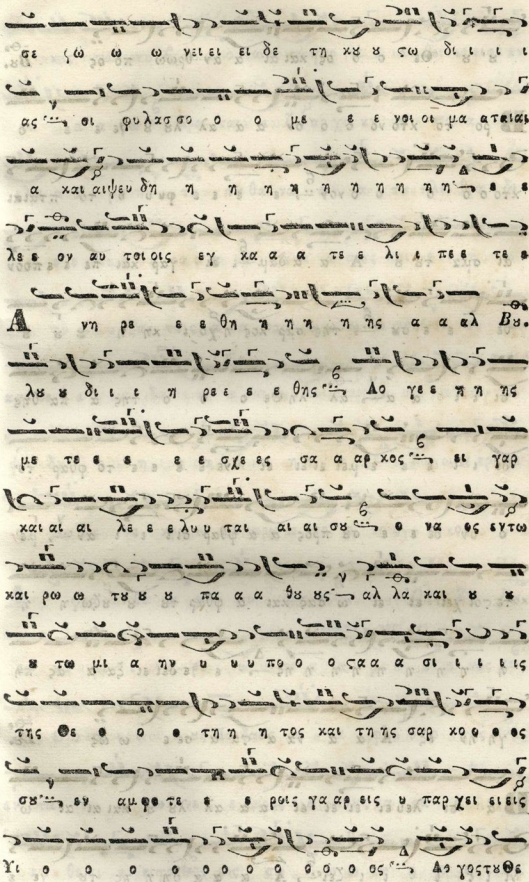 σε ζω ω ω νει ει ει δε τη κȣ ȣ ςω δι ι ι ι
ας οι φυλασσο ο ο με ε ε νοι οι μα αταιαι
α και αι ψευ δη η η η η η η η η η η ε ε
λε ε ον αυ τοι οις εγ κα α α τε ε λι ι πε ε τε ε
Α νη ρε ε ε θη η η η η ης α α αλ Βȣ.
λȣ ȣ δι ι ι η ρε ε ε ε ε θης Λο γε ε η η ης
με τε ε ε ε ε σχε ες σα α αρ κος ει γαρ
και αι αι λε ε ε λυ υ ται αι αι σȣ ο να ος εν τω
και ρω ω τȣ ȣ ȣ πα α α θȣ ȣς αλ λα και ȣ ȣ
ȣ τω μι α ην υ υ υπο ο ο ςα α α σι ι ι ι ις
της Θε ο ο ο τη η η τος και τη ης σαρ κο ο ο ος
σȣ εν αμφοτε ε ε ροις γα αρ εις υ παρ χει ει εις
Υι ο ο ο ο ο ο ο ο ο ο ο ος Λο γος τȣ Θε